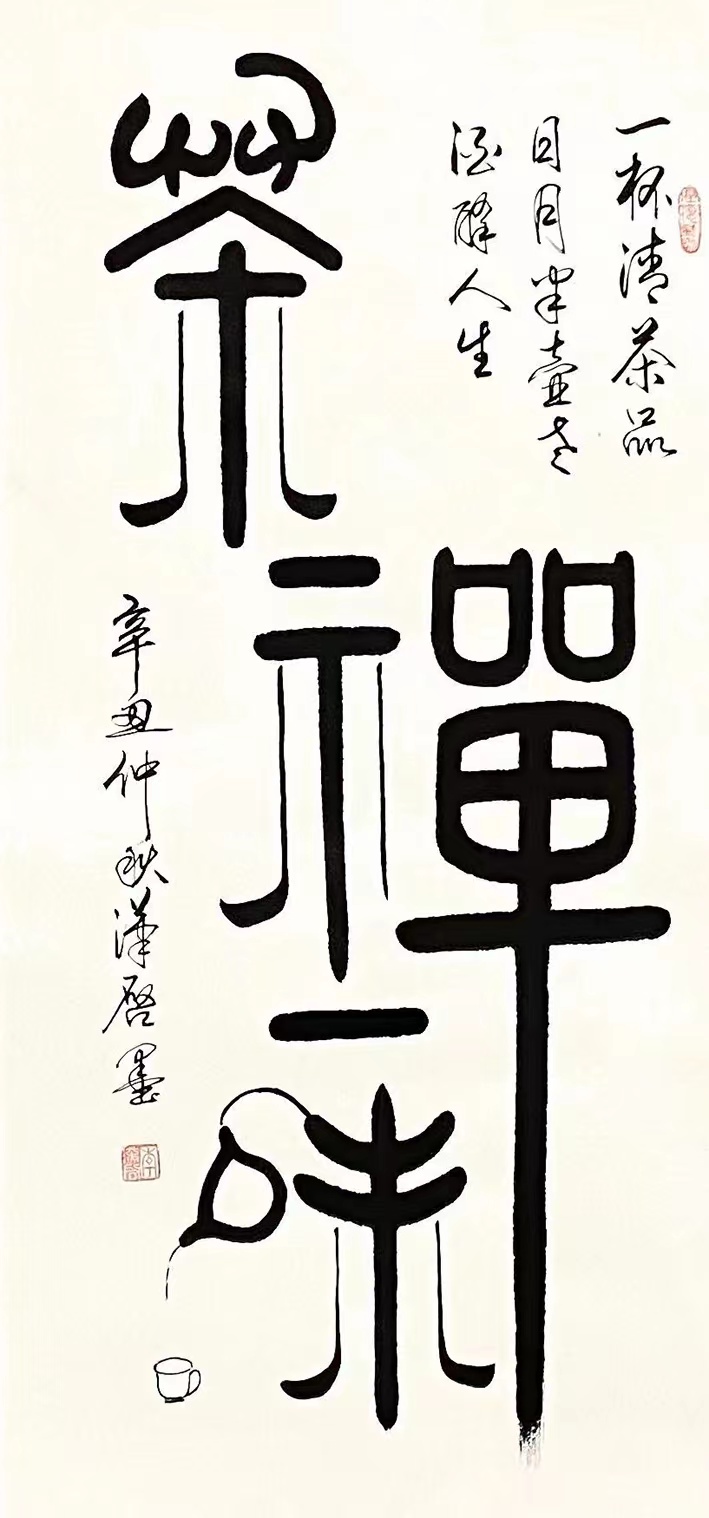 一杯清茶品
日月半壶老
酒醉人生
茶禪一味
辛丑仲秋漢啓墨